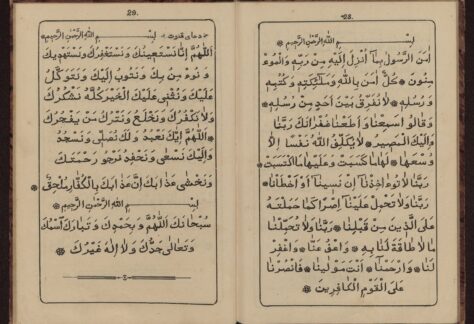 28.
بِسْمِ اللهِ الرَّحْمٰنِ الرَّحِيمِ
اٰمَنَ الرَّسُولُ بِمَا اُنْزِلَ اِلَيْهِ مِنْ رَبِّهِ وَالْمُوءْ
مِنُونَ * كُلٌّ اٰمَنَ بِاللهِ وَمَلٰئِكَتِهِ وَكُتُبِهِ
وَرُسُلِهِ * لَا نُفَرِّقُ بَيْنَ اَحَدٍ مِنْ رُسُلِهِ *
وَقَالُوا سَمِعْنَا وَاَطَعْنَا غُفْرَانَكَ رَبَّنَا
وَاِلَيْكَ الْمَصِيرُ * لَا يُكَلِّفُ اللهُ نَفْسًا اِلَّا
وُسْعَهَا * لَهَا مَا كَسَبَتْ وَعَلَيْهَا مَا اكْتَسَبَتْ *
رَبَّنَا لَا تُوءَاخِذْنَا اِنْ نَسِينَا اَوْ اَخْطَأْنَا *
رَبَّنَا وَلَا تَحْمِلْ عَلَيْنَا اِصْرًا كَمَا حَمَلْتَهُ
عَلَى الَّذِينَ مِنْ قَبْلِنَا * رَبَّنَا وَلَا تُحَمِّلْنَا
مَا لَا طَاقَةَ لَنَا بِهِ * وَاعْفُ عَنَّا * وَاغْفِرْ
لَنَا * وَارْحَمْنَا * اَنْتَ مَوْلٰينَا * فَانْصُرْنَا
عَلَى الْقَوْمِ الْكَافِرِينَ
29.
دعاى قنوت بِسْمِ اللهِ الرَّحْمٰنِ الرَّحِيمِ
اَللّٰهُمَّ اِنَّا نَسْتَعِينُكَ وَنَسْتَغْفِرُكَ وَنَسْتَهْدِيكَ
وَنُوءْمِنُ بِكَ وَنَتُوبُ اِلَيْكَ وَنَتَوَكَّلُ
عَلَيْكَ وَنُثْنِى عَلَيْكَ الْخَيْرَ كُلَّهُ نَشْكُرُكَ
وَلَا نَكْفُرُكَ وَنَخْلَعُ وَنَتْرُكُ مَنْ يَفْجُرُكَ
* اَللّٰهُمَّ اِيَّاكَ نَعْبُدُ وَلَكَ نُصَلِّى وَنَسْجُدُ
وَاِلَيْكَ نَسْعٰى وَنَحْفِدُ نَرْجُو رَحْمَتَكَ
وَنَخْشٰى عَذَابَكَ اِنَّ عَذَابَكَ بِالْكُفَّارِ مُلْحِقٌ *
بِسْمِ اللهِ الرَّحْمٰنِ الرَّحِيمِ
سُبْحَانَكَ اللّٰهُمَّ وَبِحَمْدِكَ وَتَبَارَكَ اسْمُكَ
وَتَعَالٰى جَدُّكَ وَلَا اِلٰهَ غَيْرُكَ *